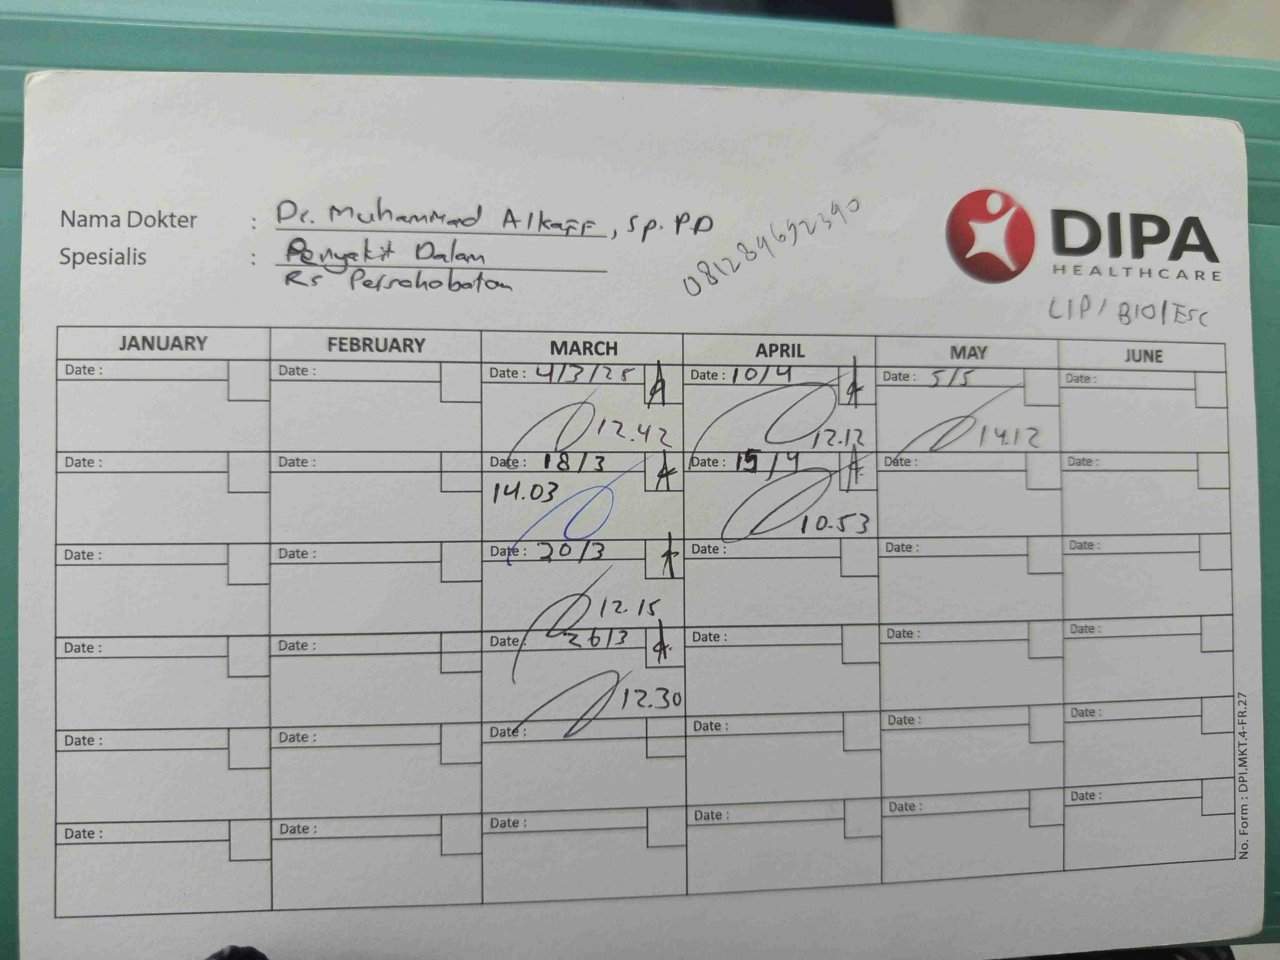 Nama Dokter : Dr. Muhammad Alkaff, Sp.PD
Spesialis : Penyakit Dalam
Rs Persahabatan
081289692390
DIPA
HEALTHCARE
LIP / BIO / ESC
JANUARY FEBRUARY MARCH APRIL MAY JUNE
Date : Date : Date : 4/3/25 Date : 10/4 Date : 5/5 Date :
12.42 12.12 14.12
Date : Date : Date : 18/3 Date : 15/4 Date : Date :
14.03 10.53
Date : Date : Date : 20/3 Date : Date : Date :
12.15
Date : Date : Date : 26/3 Date : Date : Date :
12.30
Date : Date : Date : Date : Date : Date :
Date : Date : Date : Date : Date : Date :
No. Form : DPI.MKT.4-FR.27